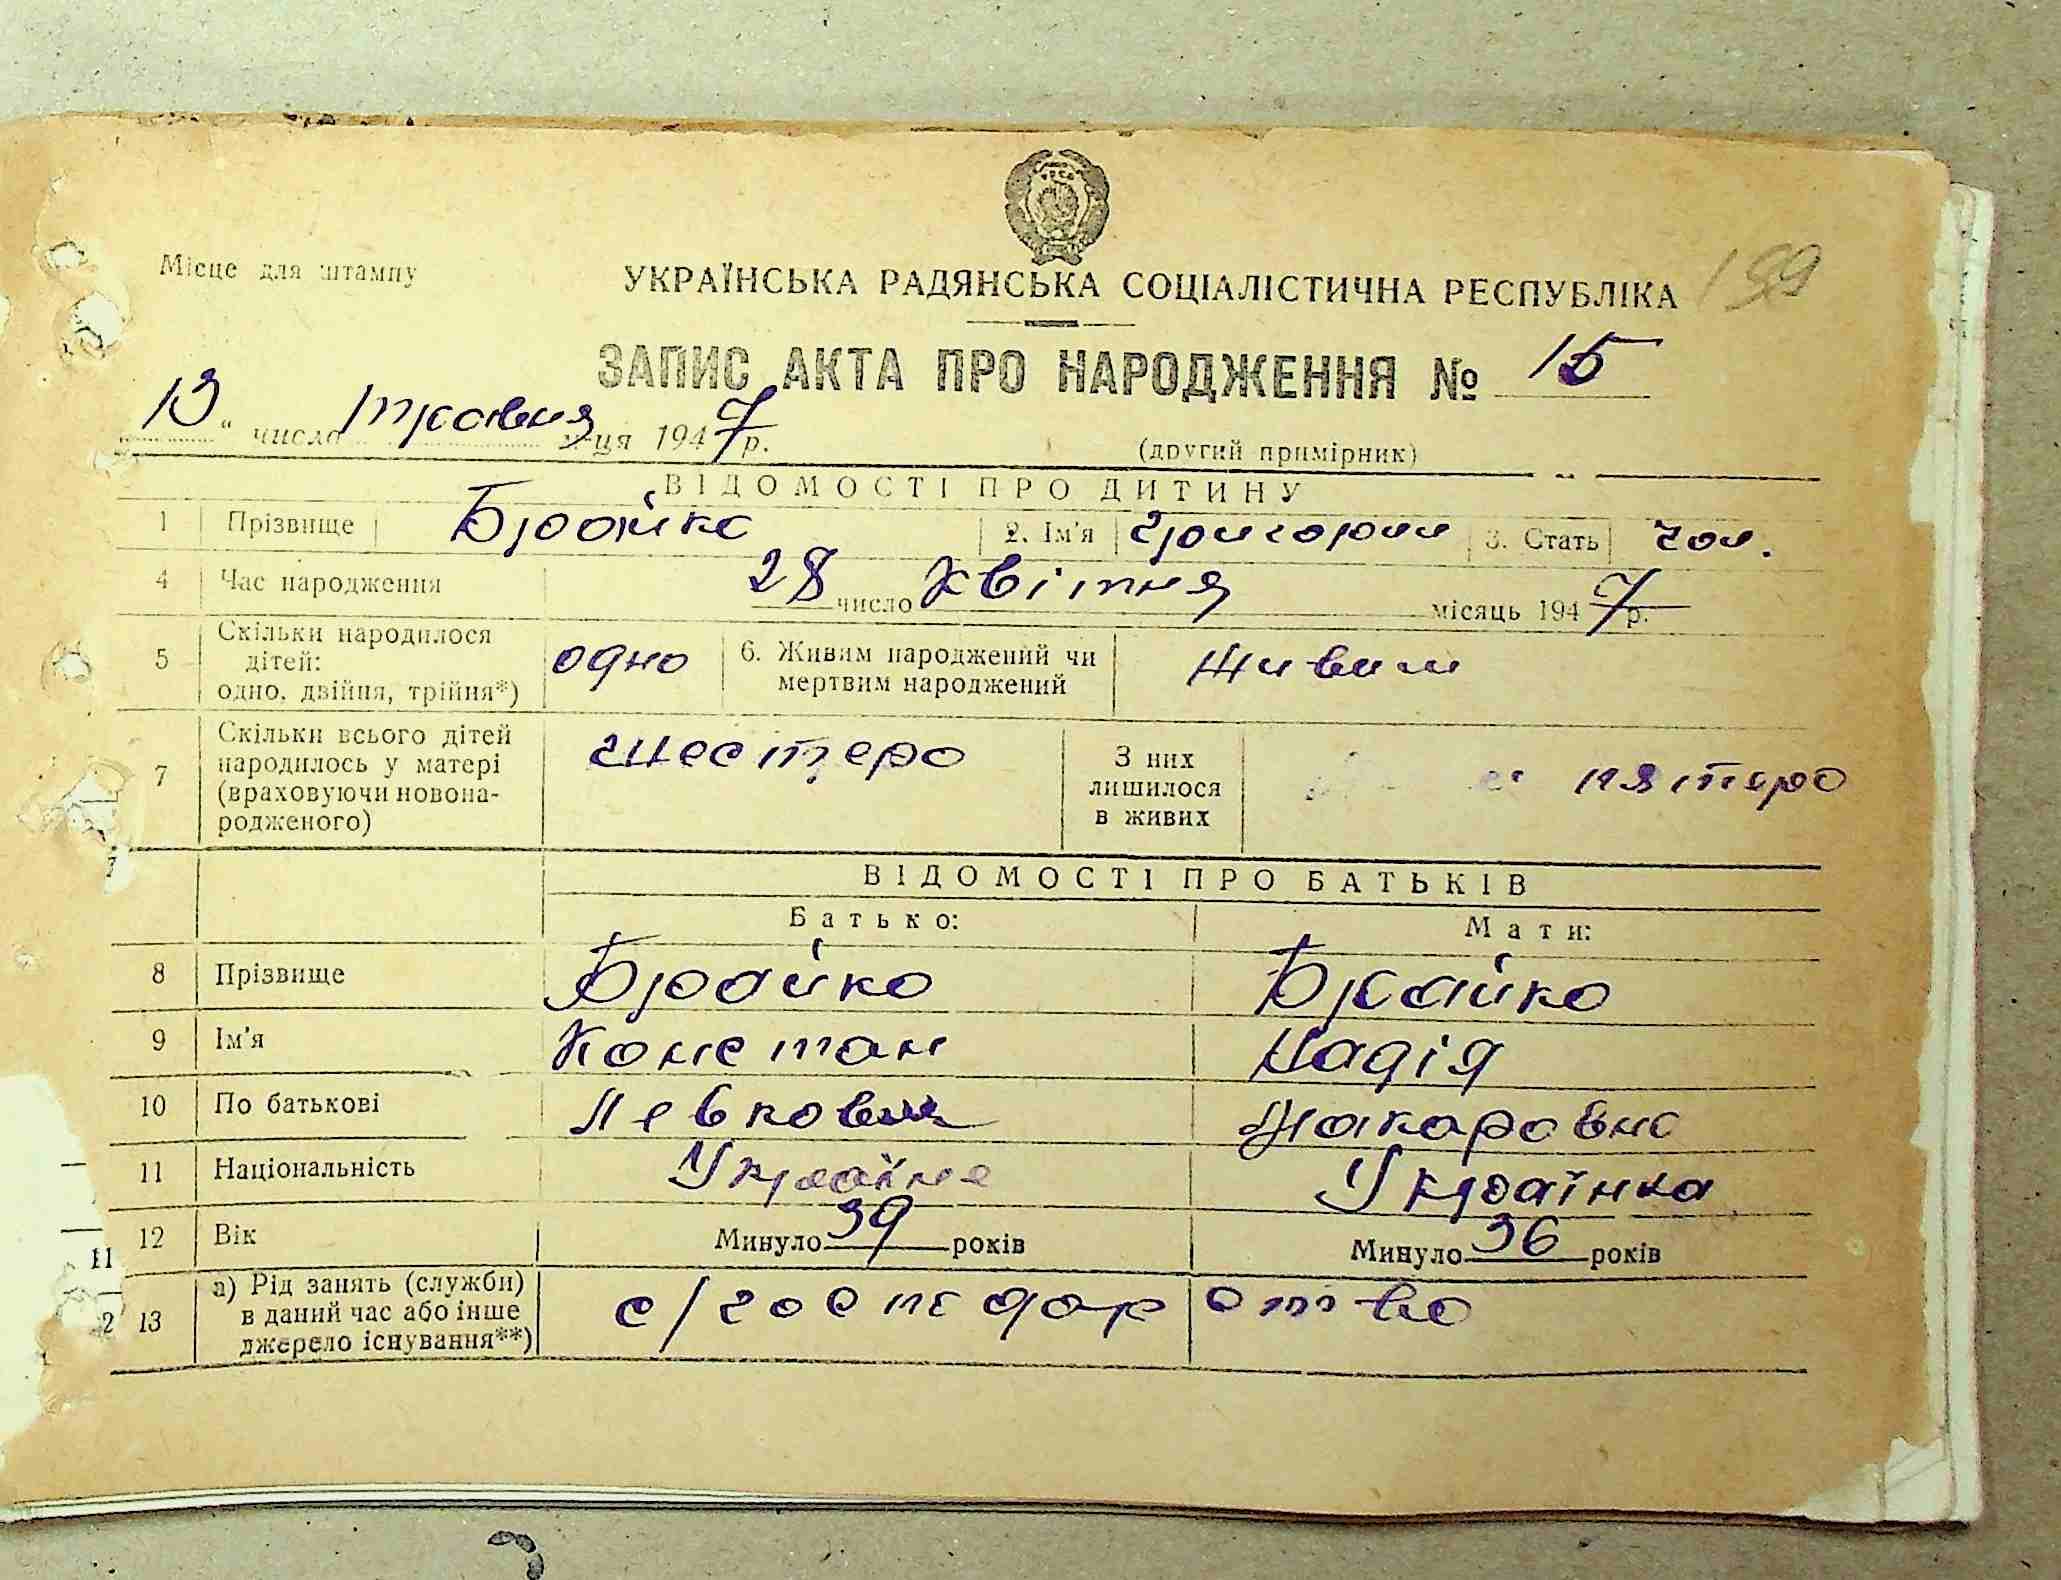 189
Місце для штампу
УКРАЇНСЬКА РАДЯНСЬКА СОЦІАЛІСТИЧНА РЕСПУБЛІКА
ЗАПИС АКТА ПРО НАРОДЖЕННЯ № 15
13 " число травня м-ця 1947 р.
(другий примірник)
ВІДОМОСТІ ПРО ДИТИНУ
1 Прізвище Брайко 2. Ім'я Григорий 3. Стать чол.
4 Час народження 28 число квітня місяць 1947 р.
5 Скільки народилося дітей: одно, двійня, трійня*) одно 6. Живим народжений чи мертвим народжений живим
7 Скільки всього дітей народилось у матері (враховуючи новонародженого) шестеро З них лишилося в живих пятеро
ВІДОМОСТІ ПРО БАТЬКІВ
Батько: Мати:
8 Прізвище Брайко Брайко
9 Ім'я Констан Надія
10 По батькові Левкович Макаровна
11 Національність Українка
12 Вік Минуло 39 років Минуло 36 років
13 а) Рід занять (служби) в даний час або інше джерело існування**) с/господарство